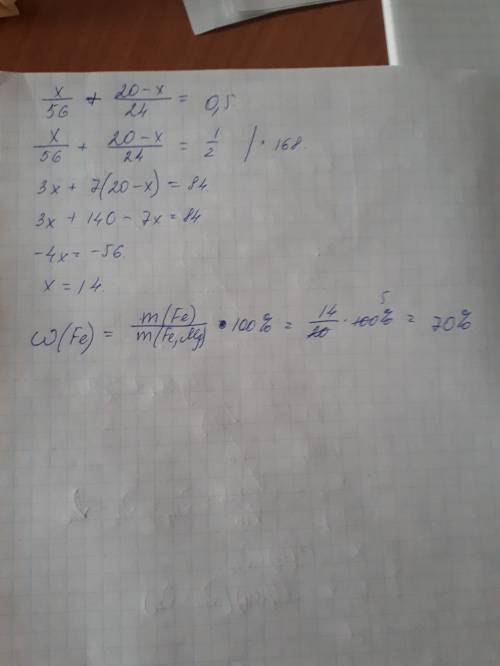 x/56 + (20-x)/24 = 0,5
x/56 + (20-x)/24 = 1/2 | · 168.
3x + 7(20-x) = 84
3x + 140 - 7x = 84
-4x = -56.
x = 14.
ω(Fe) = m(Fe)/m(Fe,Mg) · 100% = 14/20 · 100% 5 = 70%